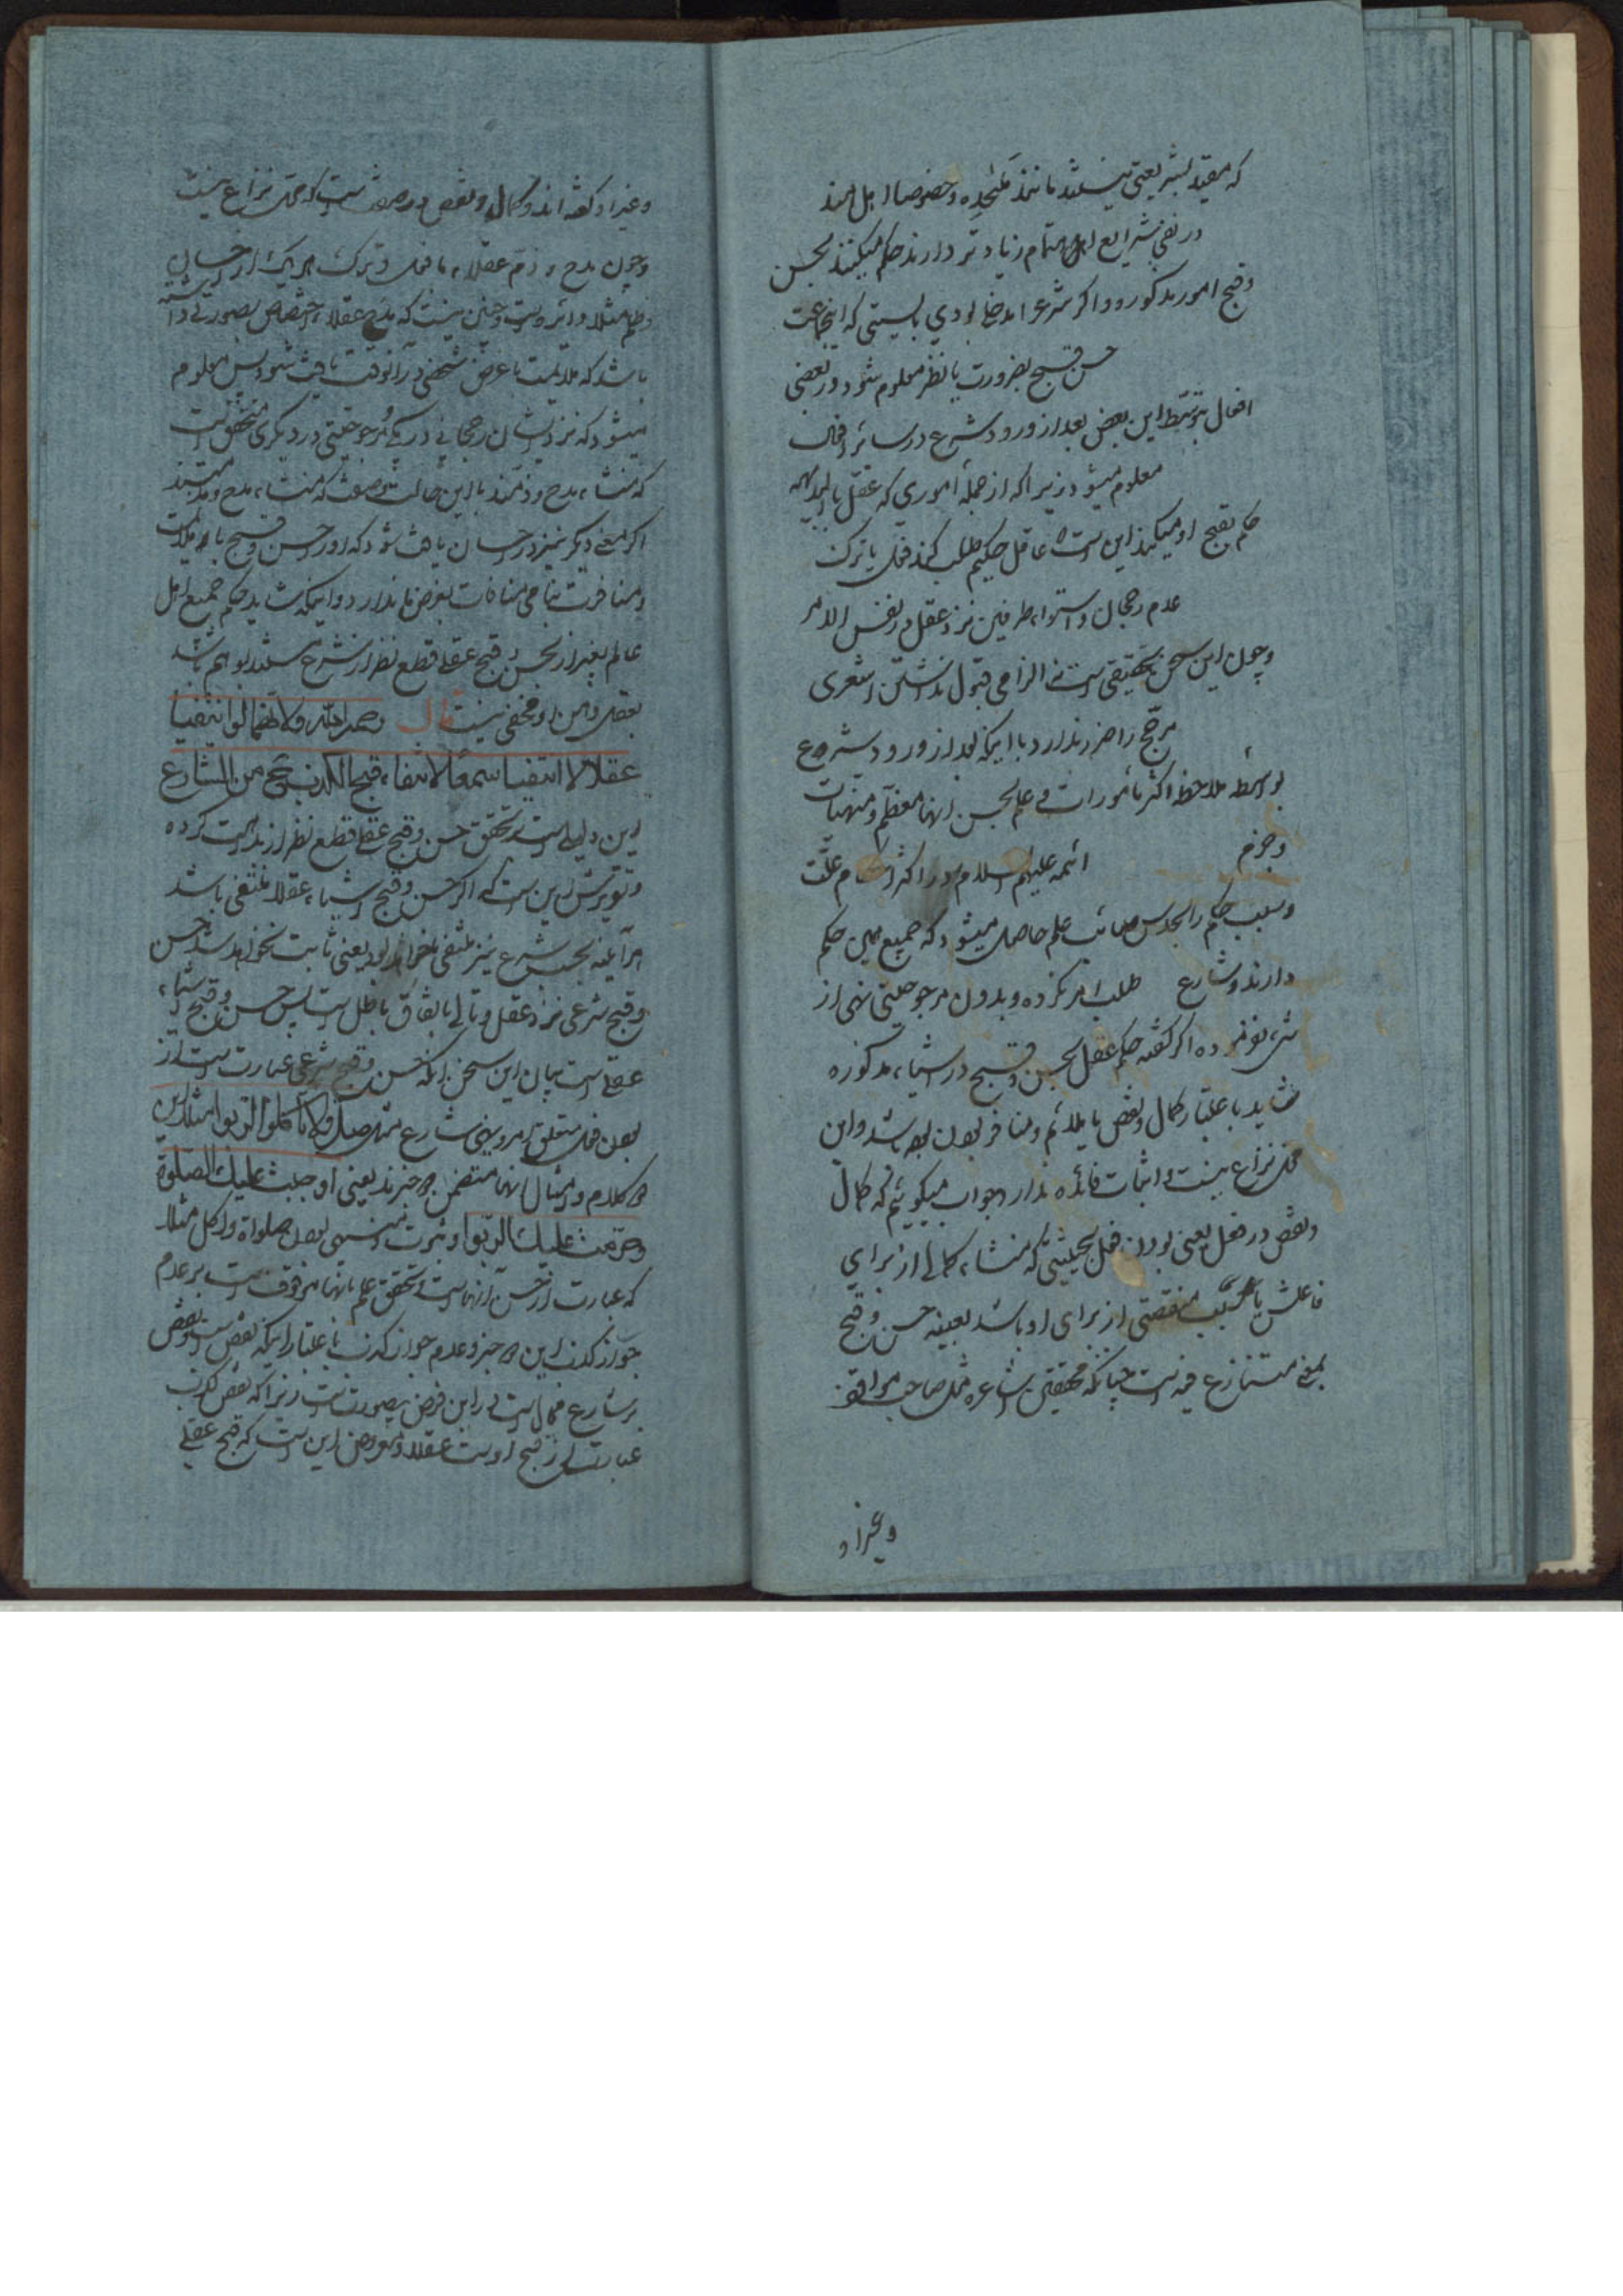 که مقید بشریعتی نیستند مانند ملحده و خصوصا اهل هند
در نفی شرایع اهتمام زیادتر دارند حکم میکنند بحسن
و قبح امور مذکوره و اگر شرع را مدخلی بودی بایستی که اینجماعت
حسن و قبح بضرورت یا نظر معلوم شود در بعضی
افعال بتوسط این بعض بعد از ورود شرع در سائر افعال
معلوم میشود زیرا که از جمله اموری که عقل بالبدیهه
حکم بقبح او میکند این است عاقل حکیم طلب کند فعل یا ترک
عدم رجحان و استواء طرفین نزد عقل در نفس الامر
و چون این سخن تحقیقی است نه الزامی قبول نداشتن اشعری
مرجح را ضرر ندارد با اینکه بعد از ورود شرع
بواسطه ملاحظه اکثر مأمورات و علم بحسن آنها معظم و منهیات
و جزم ائمه علیهم السلام در اکثر احکام علت
و سبب حکم را بحدس صائب علم حاصل میشود که جمیع همین حکم
دارند و شارع طلب امر نکرده و بدون مرجوحیتی نهی از
شیء نفرموده اگر گفته حکم عقل بحسن و قبح در اشیاء مذکوره
شاید باعتبار کمال و نقص یا ملائم و منافر بودن بوده باشد و این
محل نزاع نیست و اثبات فائده ندارد جواب میگوئیم که کمال
و نقص در فعل یعنی بودن فعل بحیثیتی که منشاء کمالی از برای
فاعلش یا منقصتی از برای او باشد بعینه حسن و قبح
بمعنی متنازع فیه است چنانکه محققین اشاعره مثل صاحب مواقف
و غیر او
و غیر او گفته اند و کمال و نقص در صفت است که محل نزاع نیست
و چون مدح و ذم عقلاء با فعل و ترک هر یک از احسان
و ظلم مثلا دائر است و چنین نیست که مدح عقلاء اختصاص بصورتی داشته
باشد که ملایمت با غرض شخصی در آنوقت یافت شود پس معلوم
میشود که نزد ایشان رجحانی در یکی و مرجوحیتی در دیگری متحقق است
که منشاء مدح و ذمند با این حالت
اگر معنی دیگر نیز در احسان یافت شود که او را حسن و قبح یا ملایمت
و منافرت یا منافات بغرض ما ندارد و اینکه شاید حکم جمیع اهل
عالم بغیر از بحسن و قبح عقلی قطع نظر از شرع مستند بوهم باشد
بعقل و هن او مخفی نیست قال رحمه الله و لانهما لو انتفیا
عقلا لانتفیا سمعا لانتفاء قبح الکذب ح من الشارع
این دلیل است بر تحقق حسن و قبح عقلی قطع نظر از بداهت کرده
و تقریرش این است که اگر حسن و قبح اشیاء عقلا منتفی باشد
هر آینه بحسب شرع نیز منتفی خواهد بود یعنی ثابت نخواهد شد حسن
و قبح شرعی نزد عقل و تالی باتفاق باطل است پس حسن و قبح اشیاء
عقلی است بیان این سخن آنکه حسن و قبح شرعی عبارت است از
بودن فعل متعلق امر و نهی شارع مثل صل و لا تاکلوا الربوا مثلا این
دو کلام و امثال آنها متضمن دو خبرند یعنی اوجبت علیک الصلوة
و حرمت علیک الربوا و ثبوت حسن و نهی بودن صلوة و اکل مثلا
که عبارت از حسن آنهاست و تحقق علم بانها موقوف است بر عدم
جواز کذب این دو خبر و عدم جواز کذب باعتبار اینکه نقص است و نقص
بر شارع محال است در این فرض بیصورت است زیرا که نقص کذب
عبارت از قبح اوست عقلا و مفروض این است که قبح عقلی